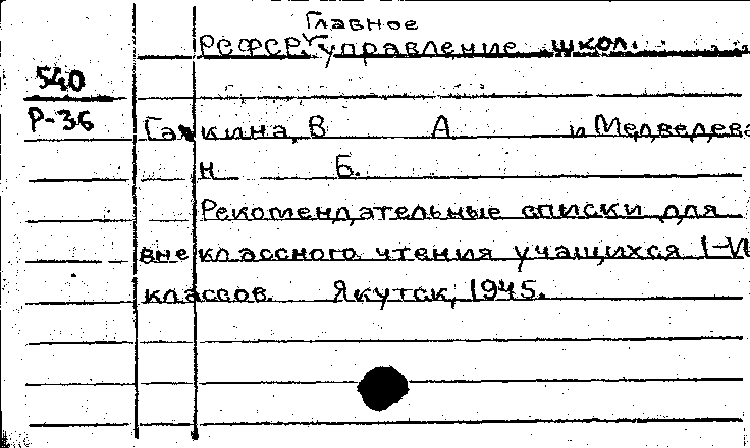 Главное
РСФСР. управление школ.
540
Р-36
Галкина, В А и Медведева
Н Б.
Рекомендательные списки для
внеклассного чтения учащихся I-VII
классов. Якутск, 1945.